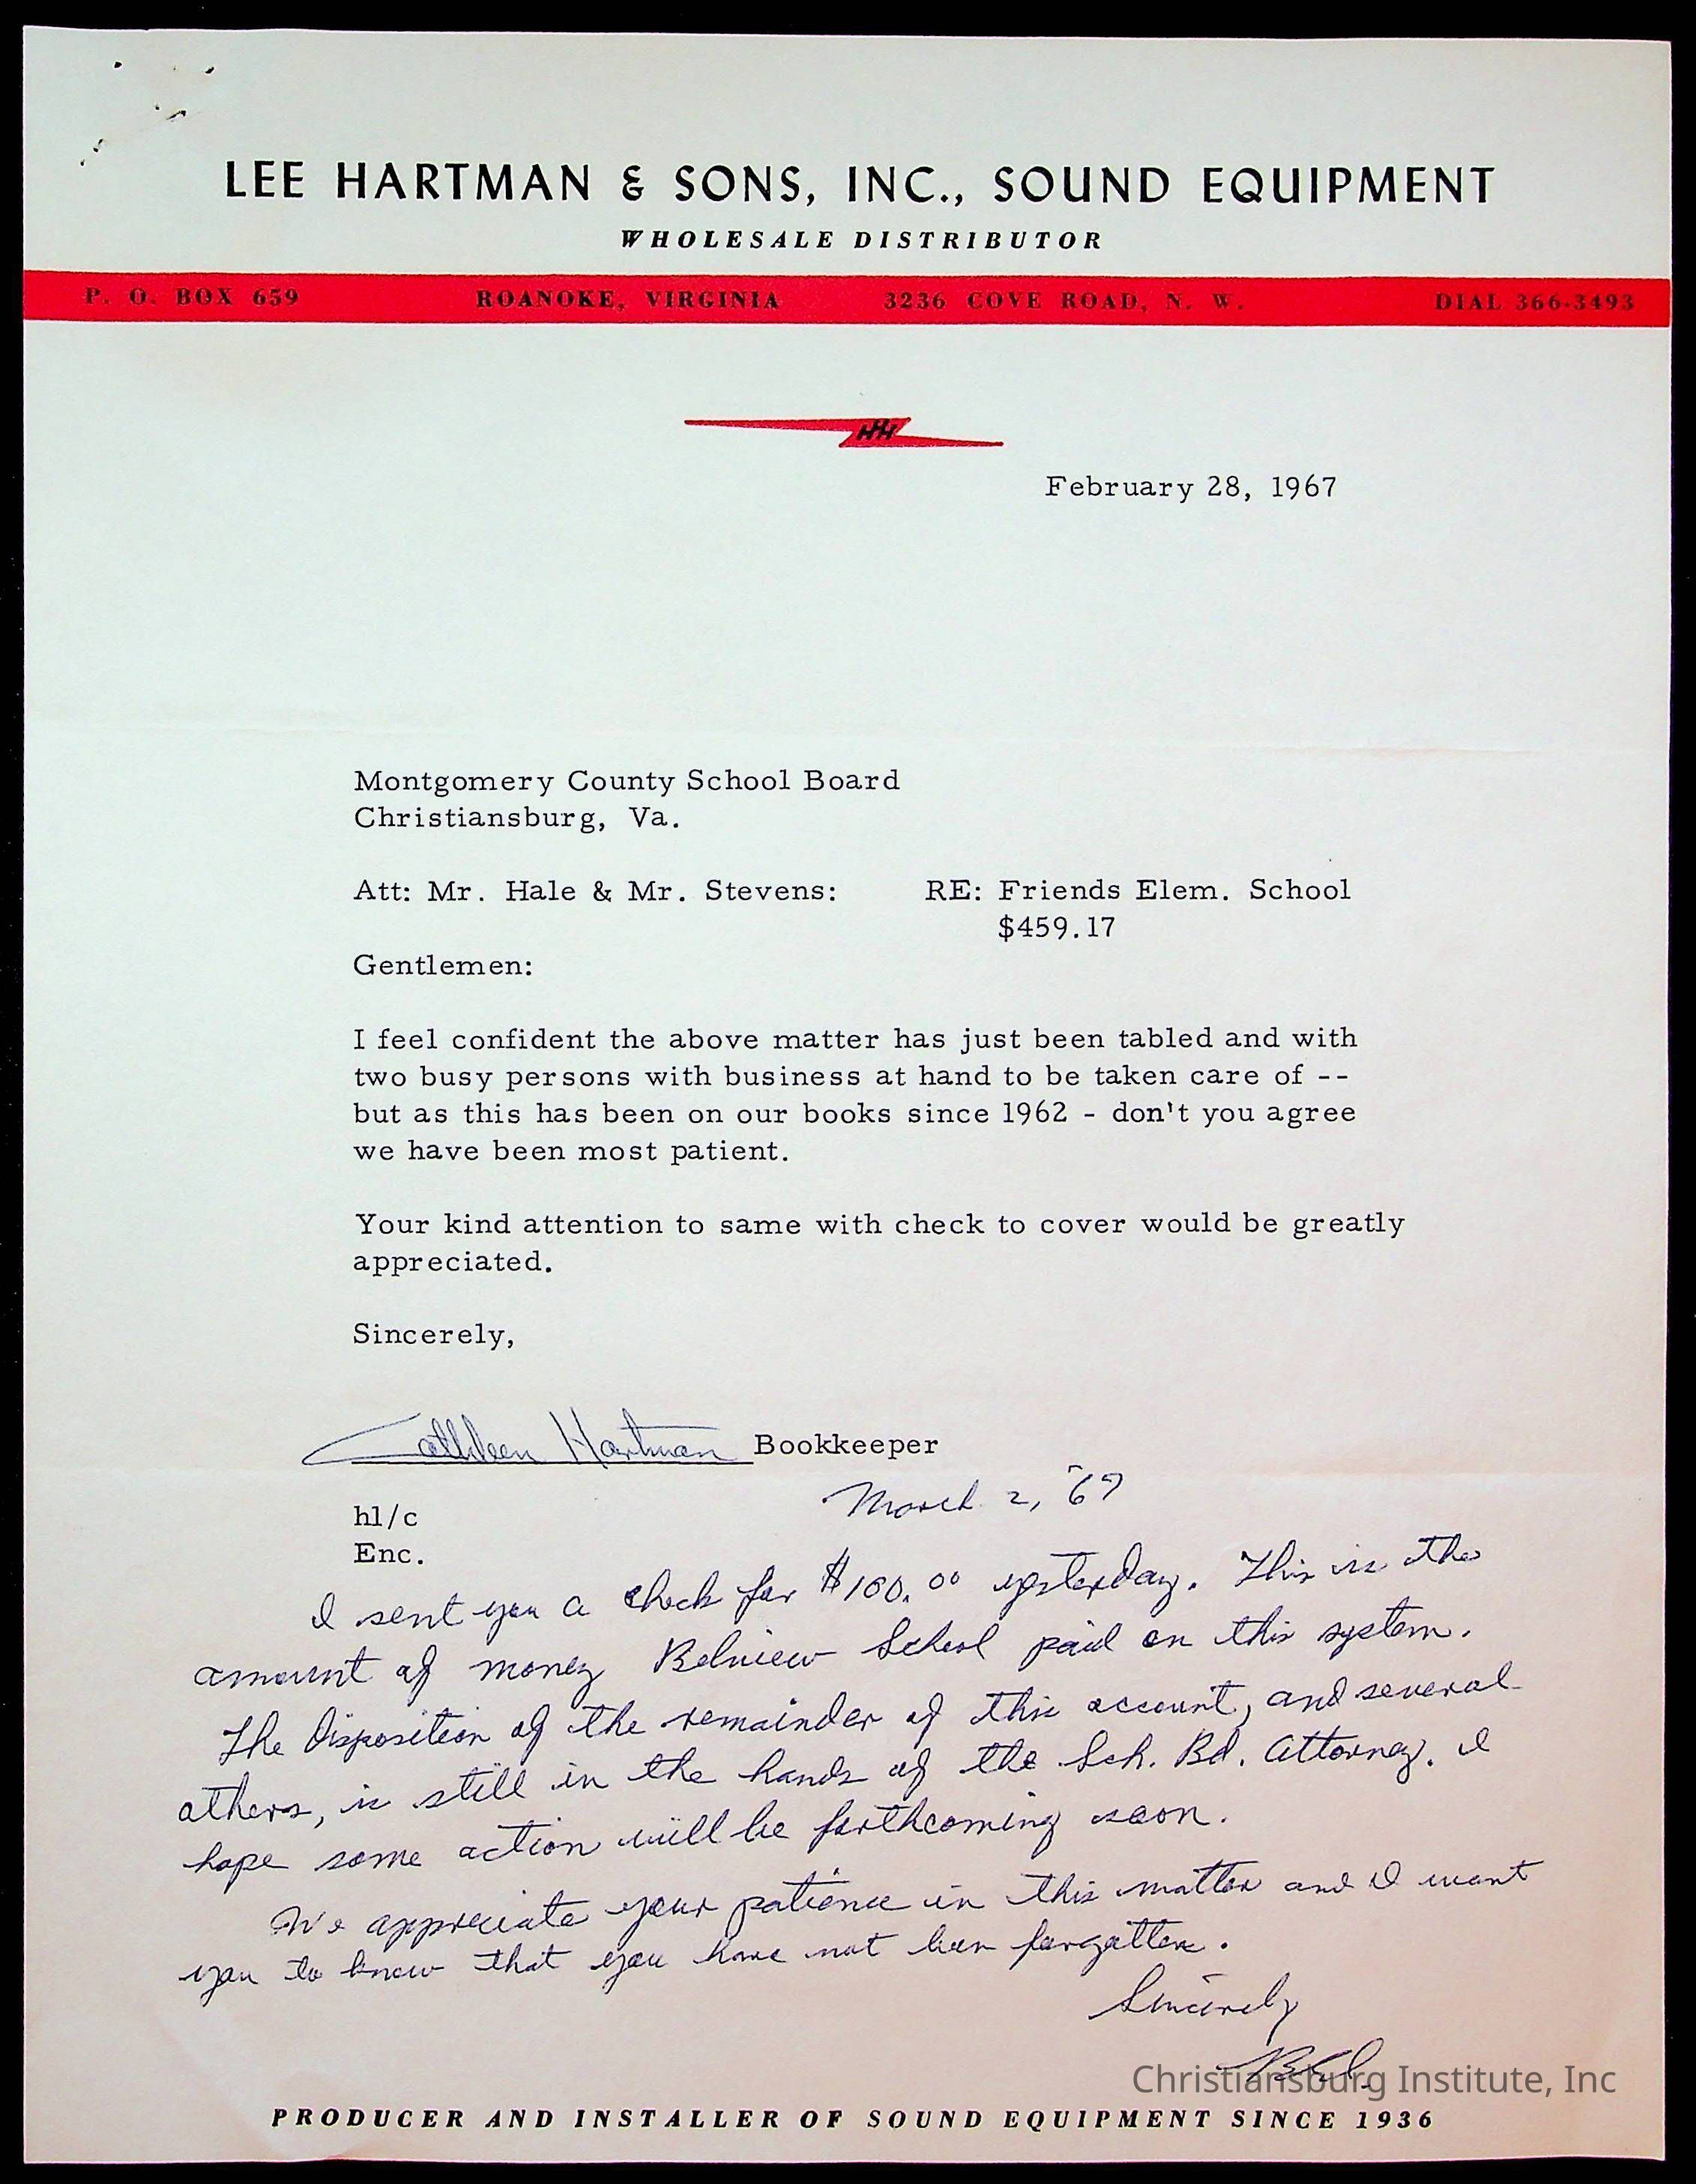 LEE HARTMAN & SONS, INC., SOUND EQUIPMENT
WHOLESALE DISTRIBUTOR
P. O. BOX 659 ROANOKE, VIRGINIA 3236 COVE ROAD, N. W. DIAL 366-3493
HH
February 28, 1967
Montgomery County School Board
Christiansburg, Va.
Att: Mr. Hale & Mr. Stevens: RE: Friends Elem. School
$459.17
Gentlemen:
I feel confident the above matter has just been tabled and with
two busy persons with business at hand to be taken care of --
but as this has been on our books since 1962 - don't you agree
we have been most patient.
Your kind attention to same with check to cover would be greatly
appreciated.
Sincerely,
Cathleen Hartman Bookkeeper
March 2, '67
hl/c
Enc.
I sent you a check for $100.00 yesterday. This is the
amount of money Belview School paid on this system.
The Disposition of the remainder of this account, and several
others, is still in the hands of the Sch. Bd. Attorney. I
hope some action will be forthcoming soon.
We appreciate your patience in this matter and I want
you to know that you have not been forgotten.
Sincerely
Christiansburg Institute, Inc
PRODUCER AND INSTALLER OF SOUND EQUIPMENT SINCE 1936